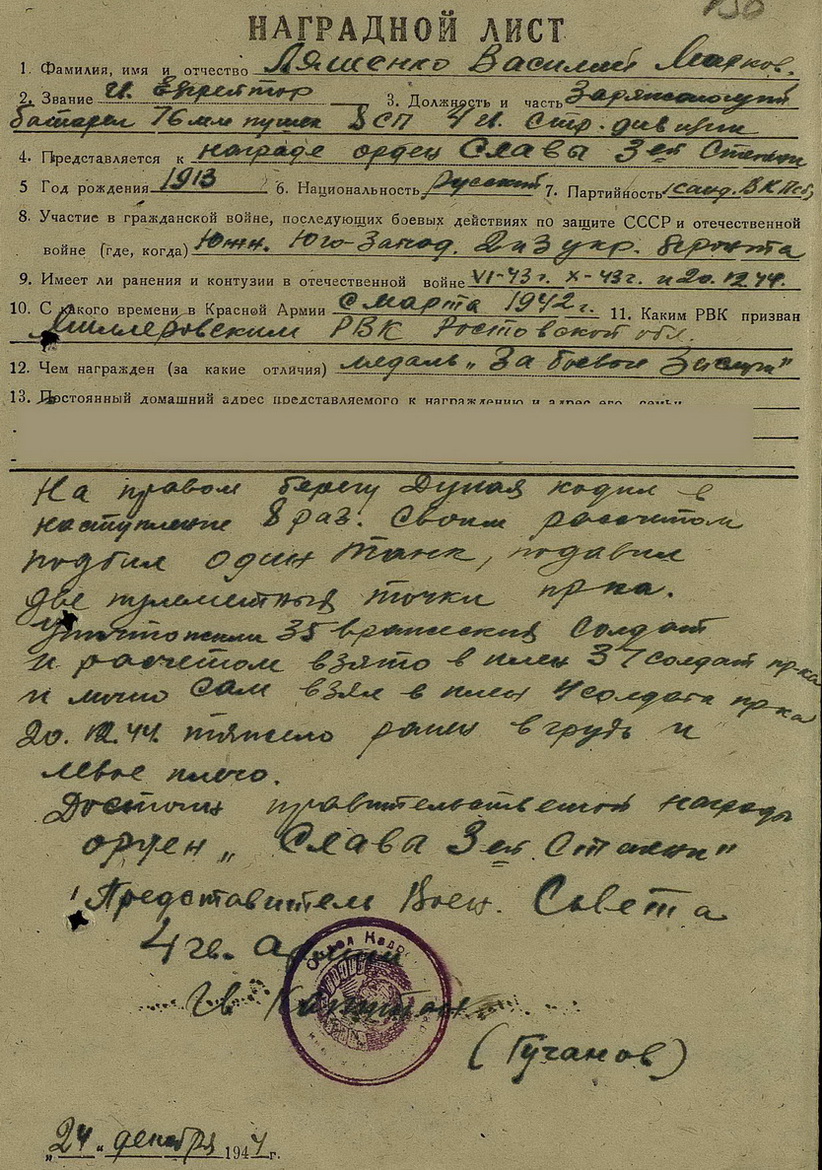 НАГРАДНОЙ ЛИСТ
1. Фамилия, имя и отчество Ляшенко Василий Марков.
2. Звание Ефрейтор 3. Должность и часть Заряжающий
батареи 76 мм пушек 8 СП 4 стр. дивизии
4. Представляется к награде орден Славы 3ей Степени
5 Год рождения 1913 6. Национальность русский 7. Партийность канд. ВКПб
8. Участие в гражданской войне, последующих боевых действиях по защите СССР и отечественной
войне (где, когда) Южн. Юго-Запад. 2 и 3 укр. фронта
9. Имеет ли ранения и контузии в отечественной войне VI-43 г. X-43 г. и 20.12.44.
10. С какого времени в Красной Армии с марта 1942 г. 11. Каким РВК призван
Миллеровским РВК Ростовской обл.
12. Чем награжден (за какие отличия) медаль „За боевые Заслуги"
13. Постоянный домашний адрес представляемого к награждению и адрес его семьи
На правом берегу Дуная ходил в
наступление 8 раз. Своим расчетом
подбил один танк, подавил
две пулеметных точки пр-ка.
35 вражеских солдат
и расчетом взято в плен 37 солдат пр-ка
и лично сам взял в плен 4 солдата пр-ка
20.12.44. тяжело ранен в грудь и
левое плечо.
Достоин правительственной награды
орден „Слава 3ей Степени"
Представитель Воен. Совета
4 гв. Армии
Гв Капитан
(Гучанов)
„24" декабря 1944 г.